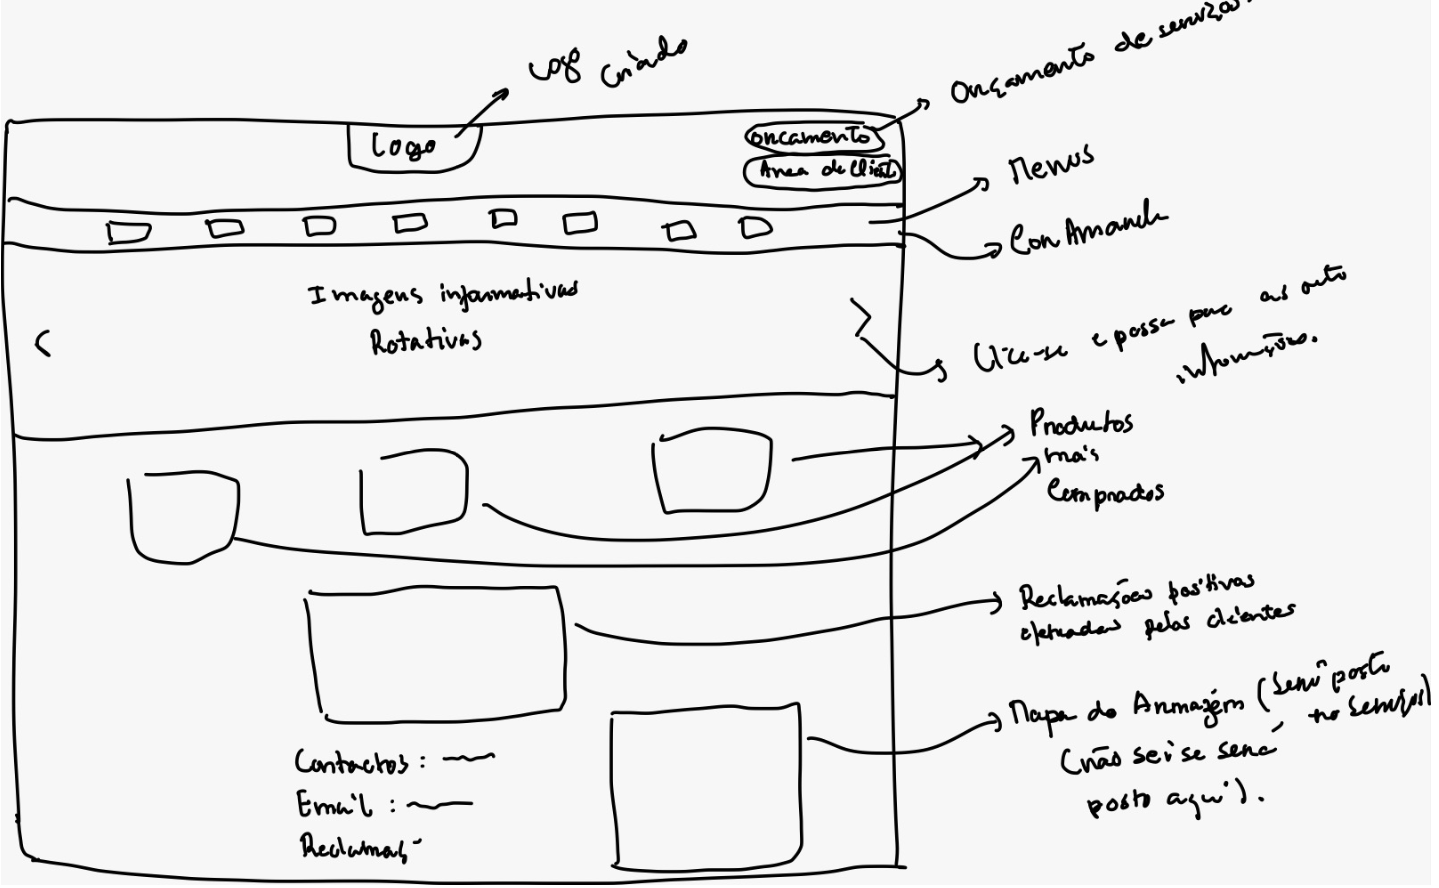 Logo
Criado
Orçamento de serviços
Logo
orcamento
Area de Client
Menus
Cor Amarela
Imagens informativas
Rotativas
<
>
Clica-se e passa para as outo
informações.
Produtos
mais
Comprados
Reclamações positivas
efetuadas pelos clientes
Mapa do Armagém (Será posto
no serviços)
(não sei se será
posto aqui).
Contactos :
Email :
Reclamaç